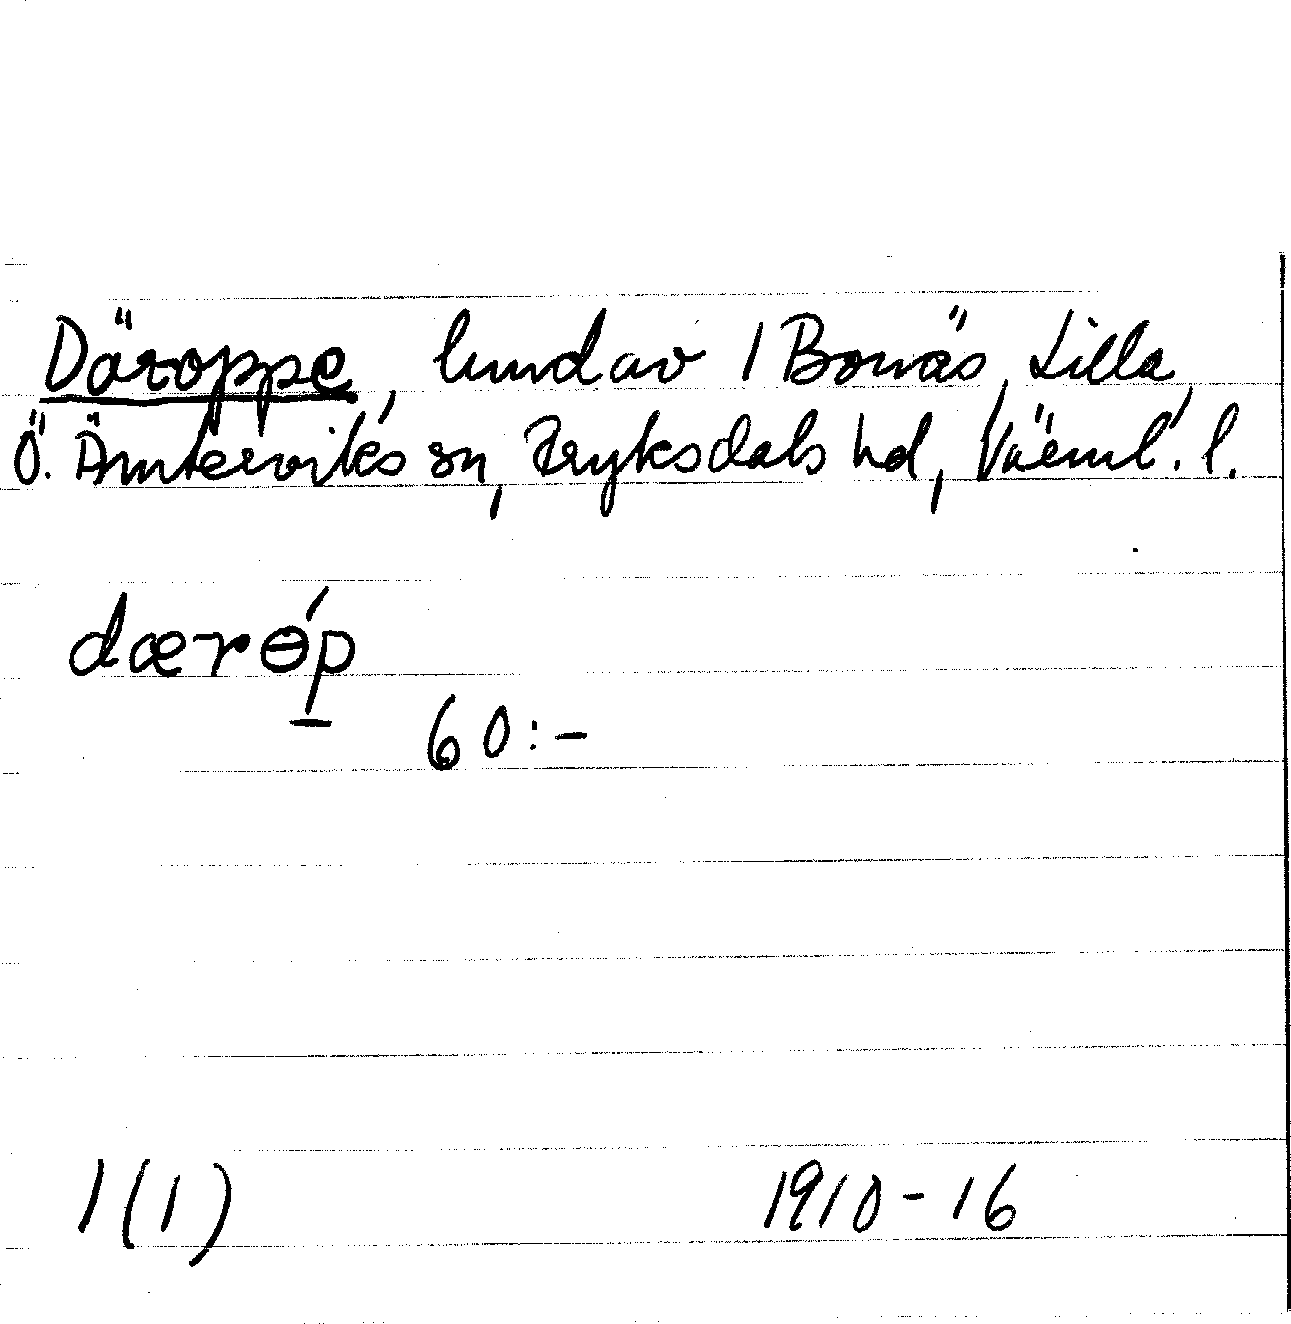 Däroppe, lund av 1 Bonäs, Lilla,
Ö. Ämterviks sn, Fryksdals hd, Värml. l.
dærɵ́p
60:-
1(1) 1910-16